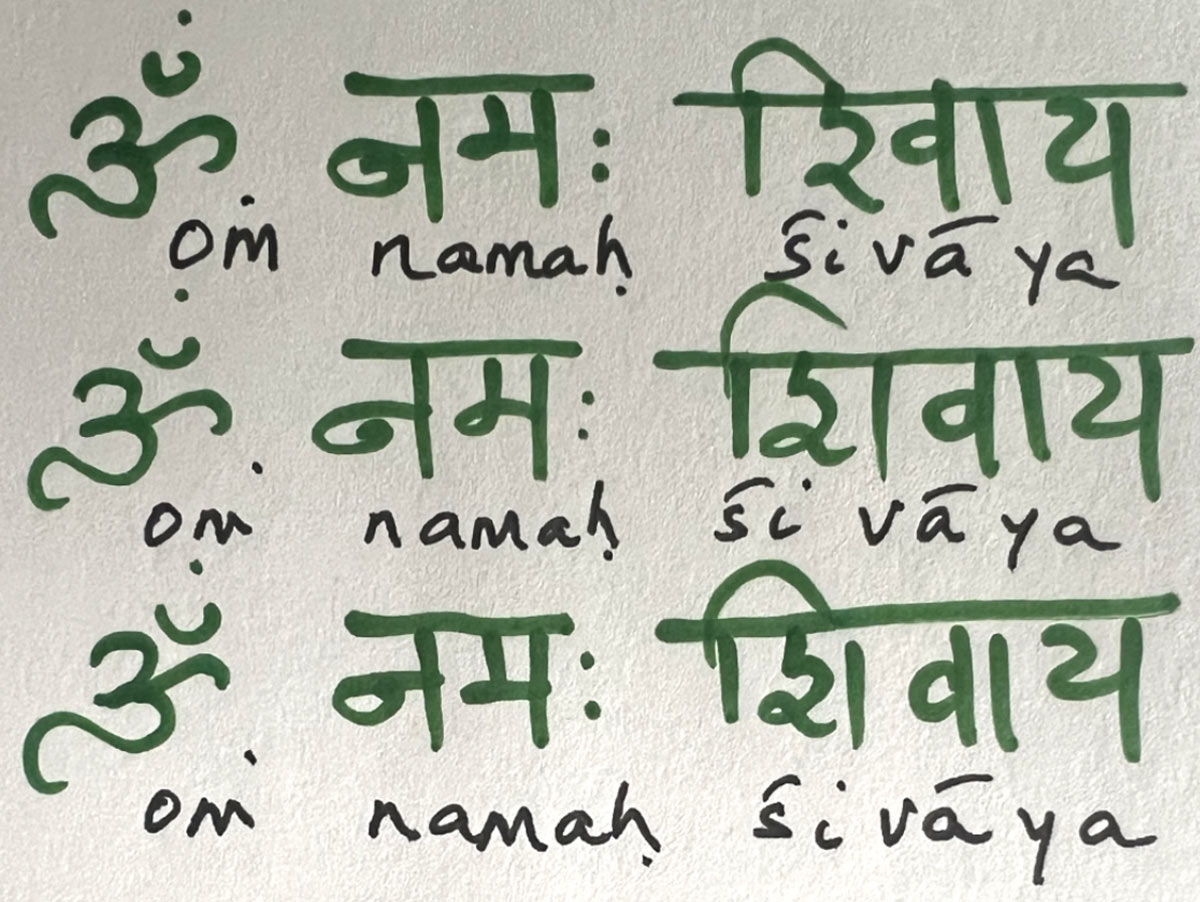 ॐ नमः रिवाय
oṁ namaḥ śivāya
ॐ नमः शिवाय
oṁ namaḥ śi vā ya
ॐ नमः शिवाय
oṁ namaḥ śi vā ya